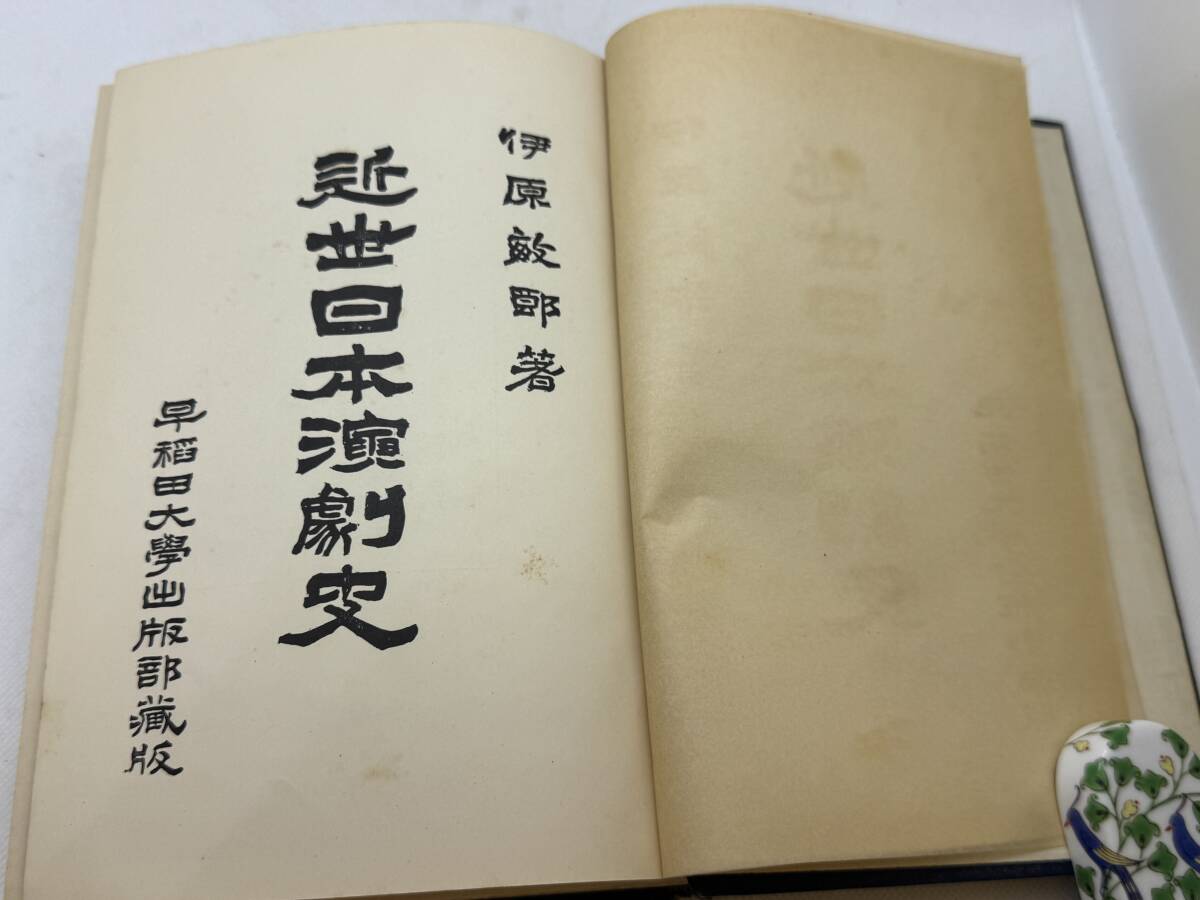 伊原敏郎著
近世日本演劇史
早稲田大學出版部藏版